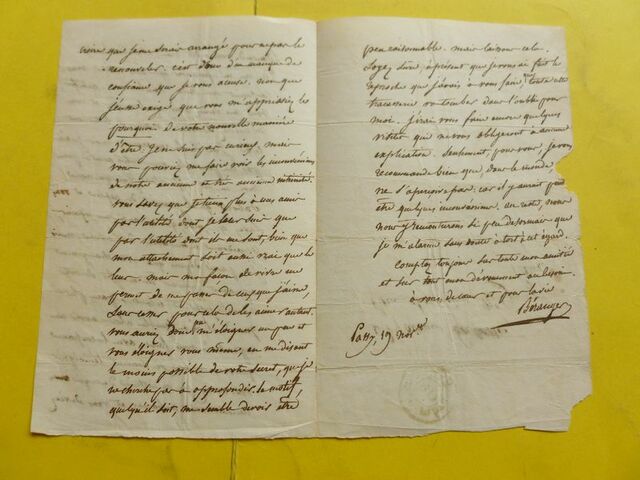 croire que je me serais arrangé pour ne pas le
renouveler. c'est donc d'un manque de
confiance que je vous accuse. non que
j'eusse exigé que vous m'apprissiez le
pourquoi de votre nouvelle manière
d'être. Je ne suis pas curieux, mais
vous pouviez me faire voir les inconvéniens
de notre ancienne et très ancienne intimité.
vous savez que je tiens plus à vous aimer
par l'utilité dont je leur suis que
par l'utilité dont ils me sont, bien que
mon attachement soit aussi vrai que le
leur. mais ma façon de vivre me
permet de me passer de ceux que j'aime,
sans cesser pour cela de les aimer autant.
vous auriez donc pu m'éloigner un peu et
vous éloigner vous même, en me disant
le moins possible de votre secret, que je
ne cherche pas à approfondir. le motif,
quel qu'il soit, me semble devoir être
peu raisonnable. mais laissons cela.
Soyez sûre, à présent que je vous ai fait le
reproche que j'avais à vous faire, que toute cette
tracasserie va tomber dans l'oubli pour
moi. J'irai vous faire encore quelques
visites qui ne vous obligeront à aucune
explication. Seulement, pour vous, je vous
recommande bien que, dans le monde, on
ne s'aperçoive pas, car il y aurait peut
être quelque inconvénient. au reste, nous
nous y rencontrons si peu désormais que
je m'alarme sans doute à tort à cet égard.
Comptez toujours sur toute mon amitié
et sur tout mon dévouement au besoin.
à vous de cœur et pour la vie
Béranger
Passy, 19 Nov.bre